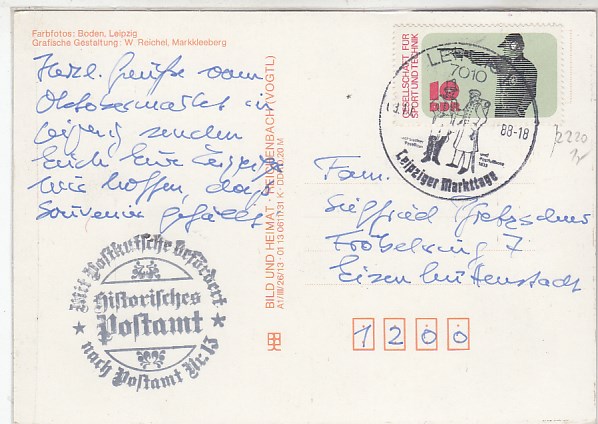 Farbfotos: Boden, Leipzig
Grafische Gestaltung: W. Reichel, Markkleeberg
Herzl. Grüße vom
Oktobermarkt in
Leipzig senden
Euch Eure Leipziger
Wir hoffen, das
Souvenir gefällt
BILD UND HEIMAT · REICHENBACH (VOGTL)
A1/III/26/13 · 01 13 0611/31 K · DDR
GESELLSCHAFT FÜR
SPORT UND TECHNIK
10
DDR
LEIPZIG
7010
88-18
Leipziger Markttage
2220
Fam.
Siegfried
Fröbelring 7
Eisenhüttenstadt
1200
Mit Postkutsche befördert
Historisches
Postamt
nach Postamt Nr. 13